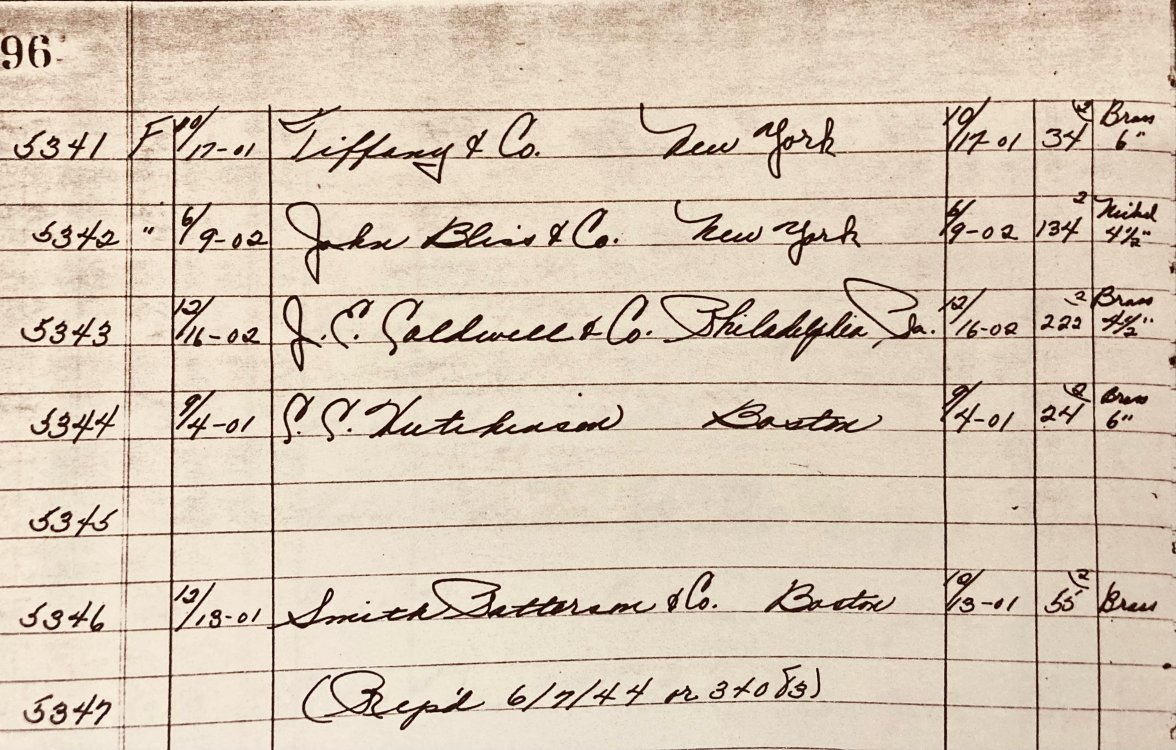 96
5341 F 10/17-01 Tiffany & Co. New York 10/17-01 34 2 Brass 6"
5342 " 6/9-02 John Bliss & Co. New York 6/9-02 134 2 Nickel 4½"
5343 12/16-02 J. E. Caldwell & Co. Philadelphia, Pa. 12/16-02 222 2 Brass 4½"
5344 9/4-01 C. C. Hutchinson Boston 9/4-01 24 2 Brass 6"
5345
5346 12/13-01 Smith Patterson & Co. Boston 55 2 Brass
5347 (Rep'd 6/7/44 or